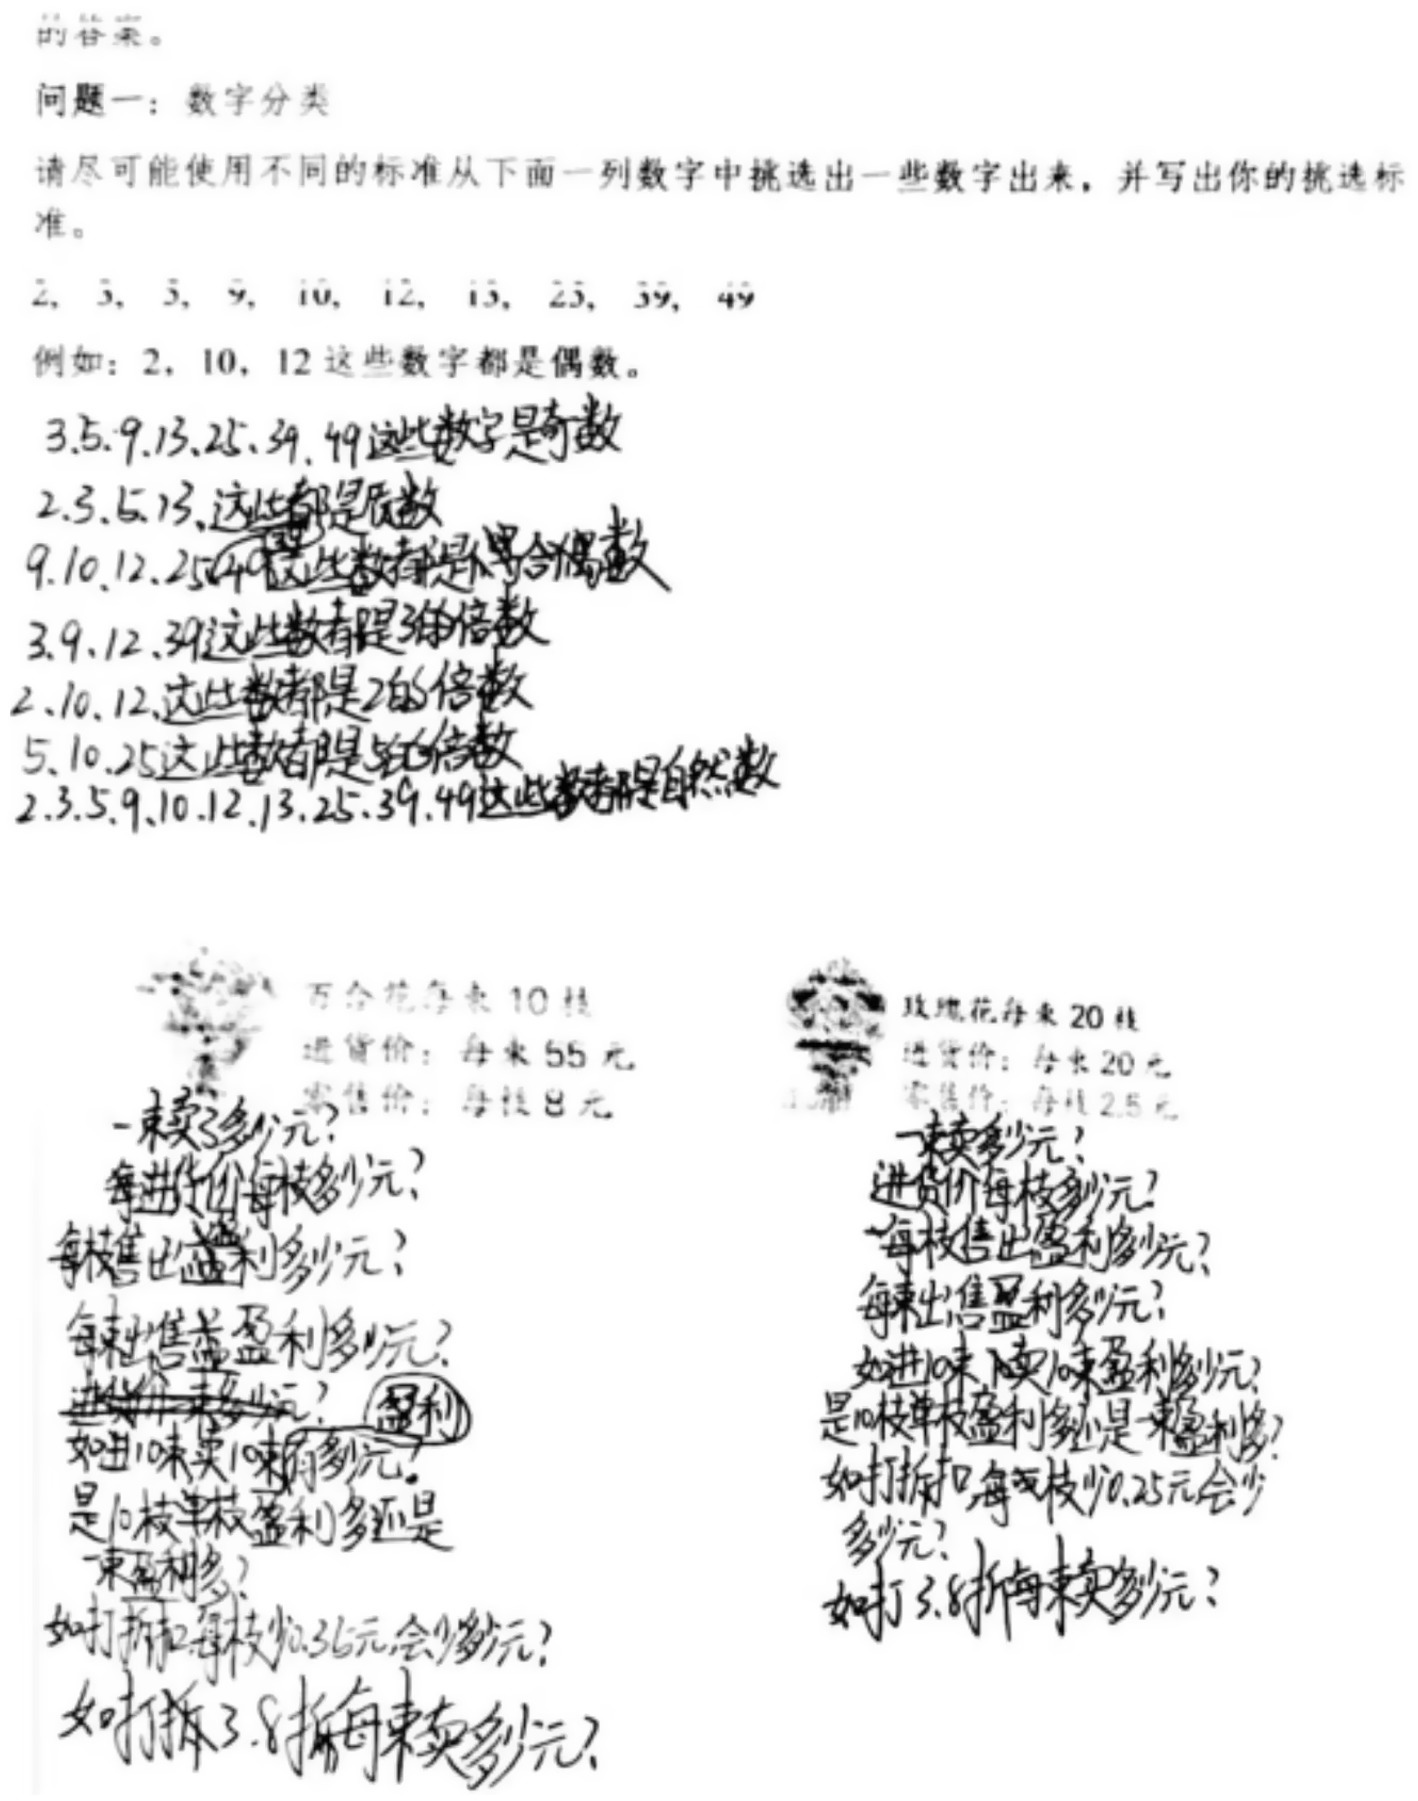 的答案。
问题一：数字分类
请尽可能使用不同的标准从下面一列数字中挑选出一些数字出来，并写出你的挑选标
准。
2， 3， 5， 9， 10， 12， 13， 25， 39， 49
例如：2，10，12 这些数字都是偶数。
3.5.9.13.25.39.49这些数字是奇数
2.3.5.13.这些都是质数
9.10.12.25.49这些数都是合数
3.9.12.39这些数都是3的倍数
2.10.12.这些数都是2的倍数
5.10.25这些数都是5的倍数
2.3.5.9.10.12.13.25.39.49这些数都是自然数
百合花每束 10 枝
进货价：每束 55 元
零售价：每枝 8 元
一束卖了多少元?
每进货价每枝多少元?
每枝售出盈利多少元?
每束出售盈利多少元?
盈利
如进10束卖10束有多少元?
是10枝单枝盈利多还是
一束盈利多?
如打折扣每枝少0.35元会少多少元?
如打折3.8折每束卖多少元?
玫瑰花每束 20 枝
进货价：每束 20 元
零售价：每枝 2.5 元
一束卖多少元?
进货价每枝多少元?
每枝售出盈利多少元?
每束出售盈利多少元?
如进10束卖10束盈利多少元?
是10枝单枝盈利多还是一束盈利多?
如打折扣每枝少0.25元会少
多少元?
如打3.8折每束卖多少元?